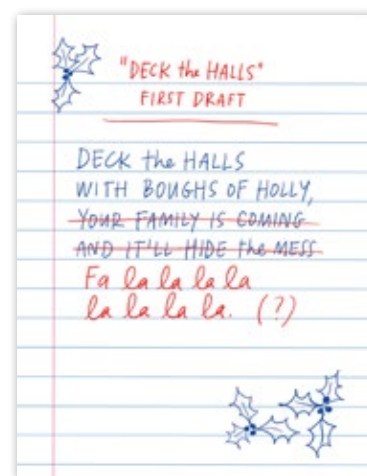 "DECK the HALLS"
FIRST DRAFT
DECK the HALLS
WITH BOUGHS OF HOLLY,
YOUR FAMILY IS COMING
AND IT'LL HIDE the MESS
Fa la la la la
la la la la. (?)